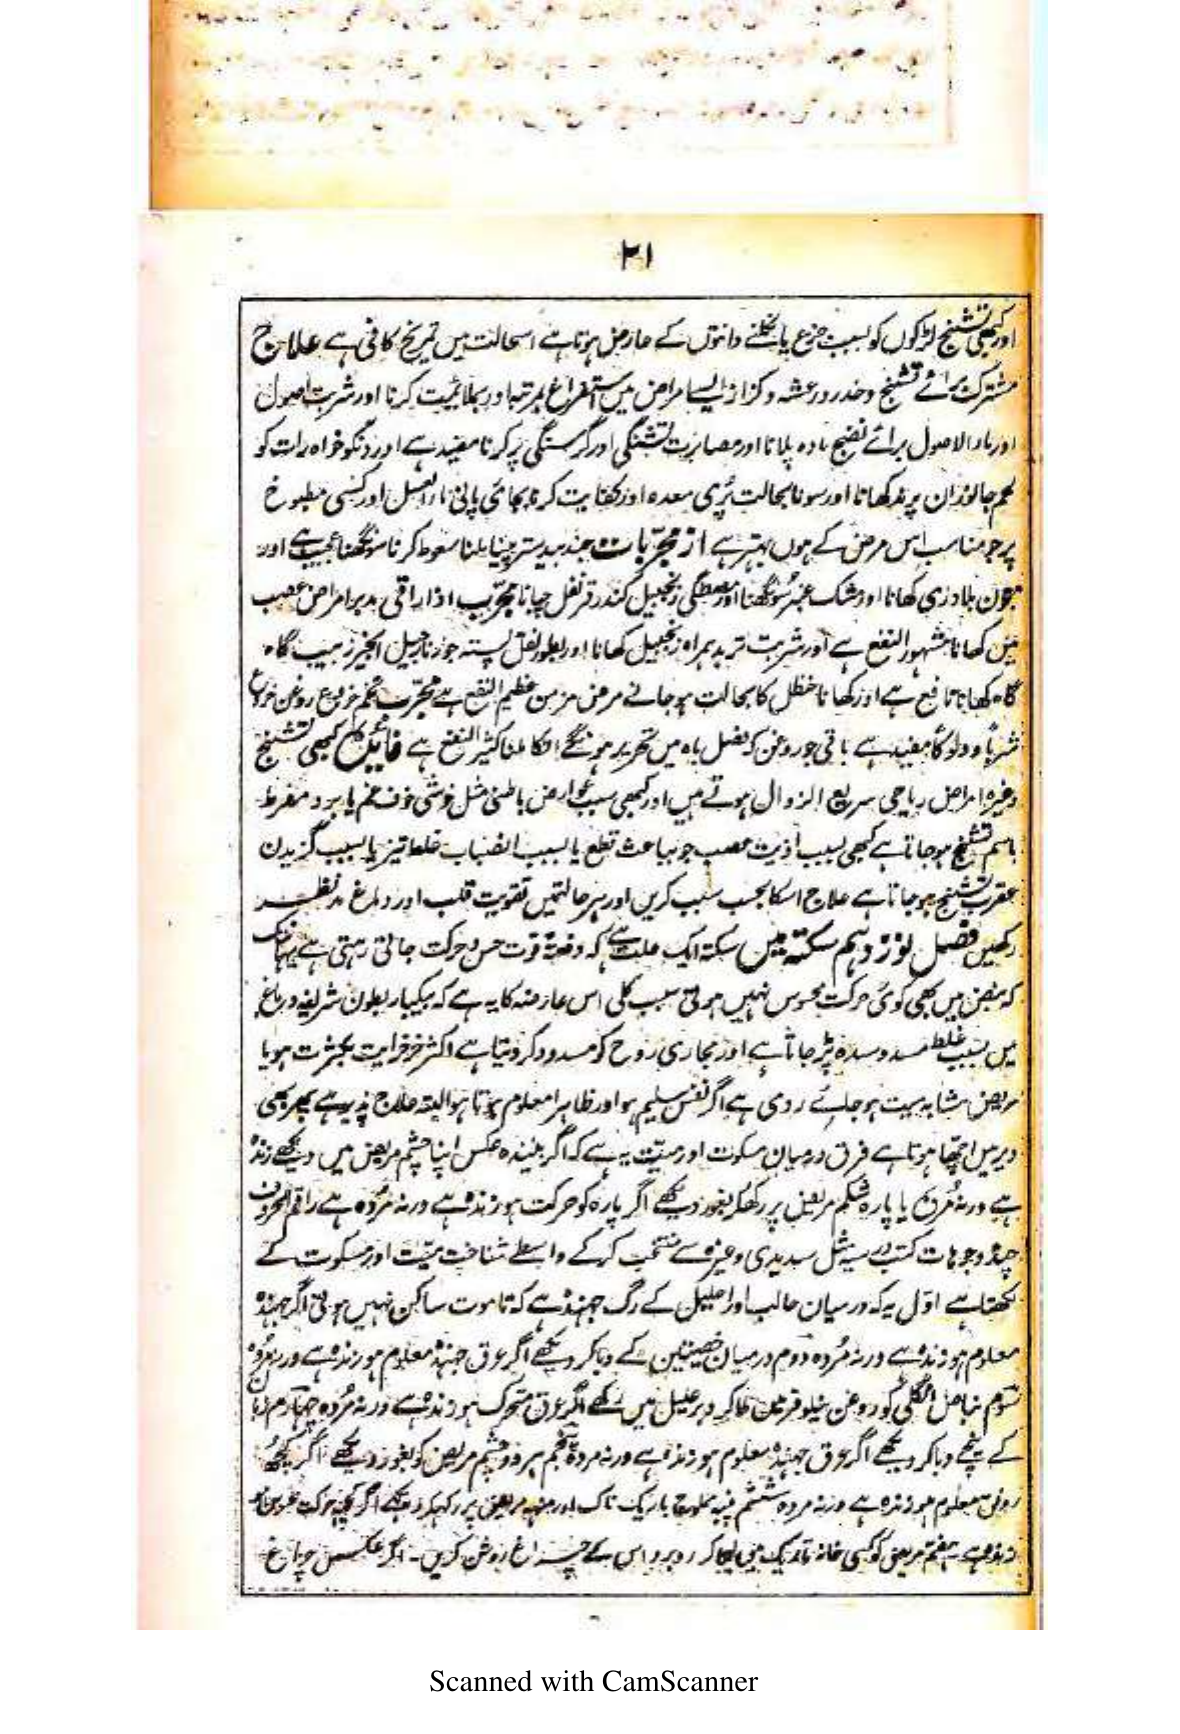 ۲۱
اور کبھی تشنج لڑکوں کو بسبب جزع یا نکلنے دانتوں کے عارض ہوتا ہے اسحالت میں تمریخ کافی ہے علاج
مشترک برائے تشنج و خدر و رعشہ و کزاز ایسے امراض میں استفراغ بمرتبہ اور بملائمیت کرنا اور شربت اصول
اور ماء الاصول برائے نضج مادہ پلانا اور مصابرت تشنگی اور گرسنگی پر کرنا مفید ہے اور دنکو خواہ رات کو
لحم جانوران پرند کھانا اور سونا بحالت پُری معدہ اور کفایت کرنا بجائی پانی ماء العسل اور کسی مطبوخ
پر جو مناسب اس مرض کے ہوں بہتر ہے از مجرّبات جند بیدستر پینا ملنا سعوط کرنا سونگھنا عجیب ہے اور
جون بلادری کھانا اور مشک عنبر سونگھنا اور مصطگی زنجبیل کندر قرنفل چبانا مجرّب اذاراقی مدبر امراض عصب
میں کھانا مشہور النفع ہے اور شربت تربد ہمراہ زنجبیل کھانا اور بطور نقل پستہ جوز نارجیل انجیر زبیب گاہ
گاہ کھانا نافع ہے اور کھانا حنظل کا بحالت ہو جانے مرض مزمن عظیم النفع ہے مجرّب تخم خروع روغن خروع
شرباً و دلوکاً مفید ہے باقی جو روغن کہ فصل باہ میں تحریر ہونگے انکا ملنا کثیر النفع ہے فائدہ کبھی تشنج
وغیرہ امراض ریاحی سریع الزوال ہوتے ہیں اور کبھی بسبب عوارض باطنی مثل خوشی خوف غم یا برد مفرط
باسم تشنج ہو جاتا ہے کبھی بسبب اذیت عصب جو بباعث قطع یا بسبب انصباب خلط تیز یا بسبب گزیدن
عقرب تشنج ہو جاتا ہے علاج اسکا بحسب سبب کریں اور ہر حالتمیں تقویت قلب اور دماغ مد نظر
رکھیں فصل نوزدہم سکتہ میں سکتہ ایک علت ہے کہ دفعةً قوت حس و حرکت جاتی رہتی ہے یہانتک
کہ نبض میں بھی کوئی حرکت محسوس نہیں ہوتی سبب کلی اس عارضہ کا یہ ہے کہ یکبار بطون شریفہ دماغ
میں بسبب غلط سدہ پڑ جاتا ہے اور مجاری روح کو مسدود کر دیتا ہے اکثر خرخراہت بکثرت ہو یا
مریض مشابہ میت ہو جائے ردی ہے اگر نفس سلیم ہو اور ظاہرا معلوم ہوتا ہو البتہ علاج پذیر ہے پھر بھی
دیر میں اچھا ہوتا ہے فرق درمیان مسکوت اور میّت یہ ہے کہ اگر بینندہ عکس اپنا چشم مریض میں دیکھے زندہ
ہے ورنہ مُردہ یا پارہ شکم مریض پر رکھکر بغور دیکھے اگر پارہ کو حرکت ہو زندہ ہے ورنہ مُردہ ہے راقم الحروف
چند وجوہات کتب درسیہ مثل سدیدی وغیرہ سے منتخب کر کے واسطے شناخت میّت اور مسکوت کے
لکھتا ہے اوّل یہ کہ درمیان حالب اور احلیل کے رگ جہندہ ہے کہ تا موت ساکن نہیں ہوتی اگر جہندہ
معلوم ہو زندہ ہے ورنہ مُردہ دوم درمیان خصیتین کے دبا کر دیکھے اگر عرق جہندہ معلوم ہو زندہ ہے ورنہ مُردہ
سوم انگلی کو روغن نیلوفر میں دبر علیل میں رکھے اگر عرق متحرک ہو زندہ ہے ورنہ مُردہ چہارم زبان
کے نیچے دبا کر دیکھے اگر عرق جہندہ معلوم ہو زندہ ہے ورنہ مردہ پنجم ہر دو چشم مریض کو بغور دیکھے اگر کچھ
رونق معلوم ہو زندہ ہے ورنہ مردہ ششم پنبہ محلوج باریک ناک اور منہ مریض پر رکھکر دیکھے اگر کچھ حرکت محسوس ہو
زندہ ہے ہفتم مریض کو کسی خانہ تاریک میں لیجا کر روبرو اس کے چراغ روشن کریں۔ اگر عکس چراغ
Scanned with CamScanner